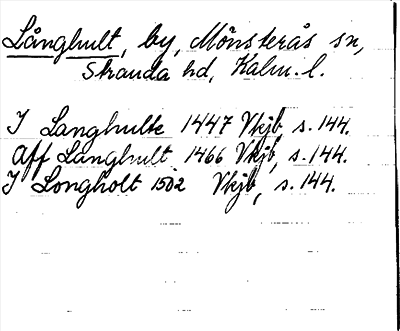 Långhult, by, Mönsterås sn,
Stranda hd, Kalm. l.
I Langhulte 1447 Vkjb, s. 144.
Aff Langhult 1466 Vkjb, s. 144.
I Longholt 1502 Vkjb, s. 144.